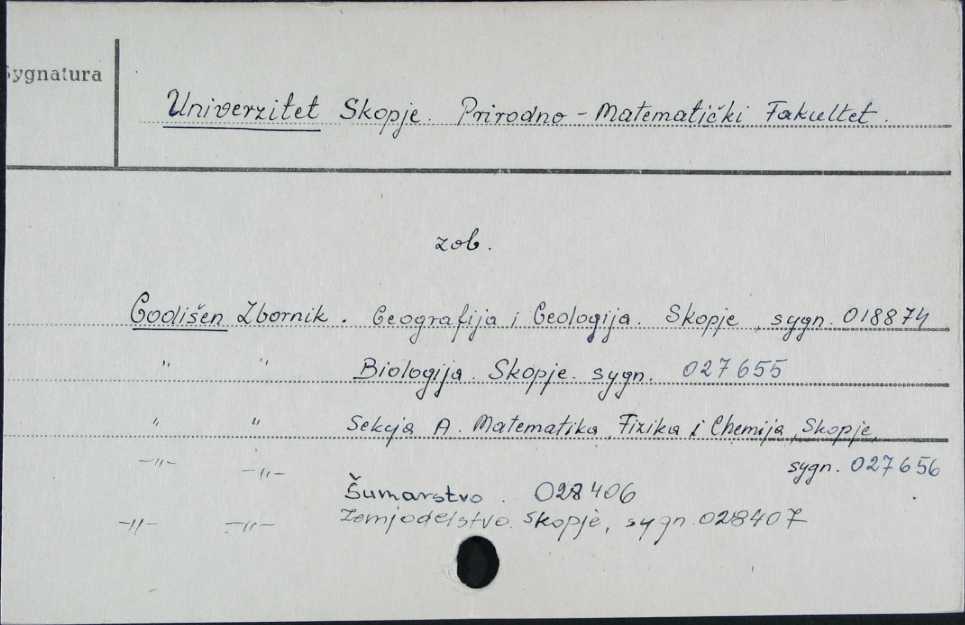 Sygnatura
Univerzitet Skopje. Prirodno-Matematički Fakultet.
zob.
Godišen Zbornik. Geografija i Geologija. Skopje, sygn. 018874
" " Biologija. Skopje. sygn. 027655
" " Sekcja A. Matematika, Fizika i Chemija, Skopje,
sygn. 027656
-"- -"- Šumarstvo. 028406
-"- -"- Zemjodelstvo. Skopje, sygn. 028407